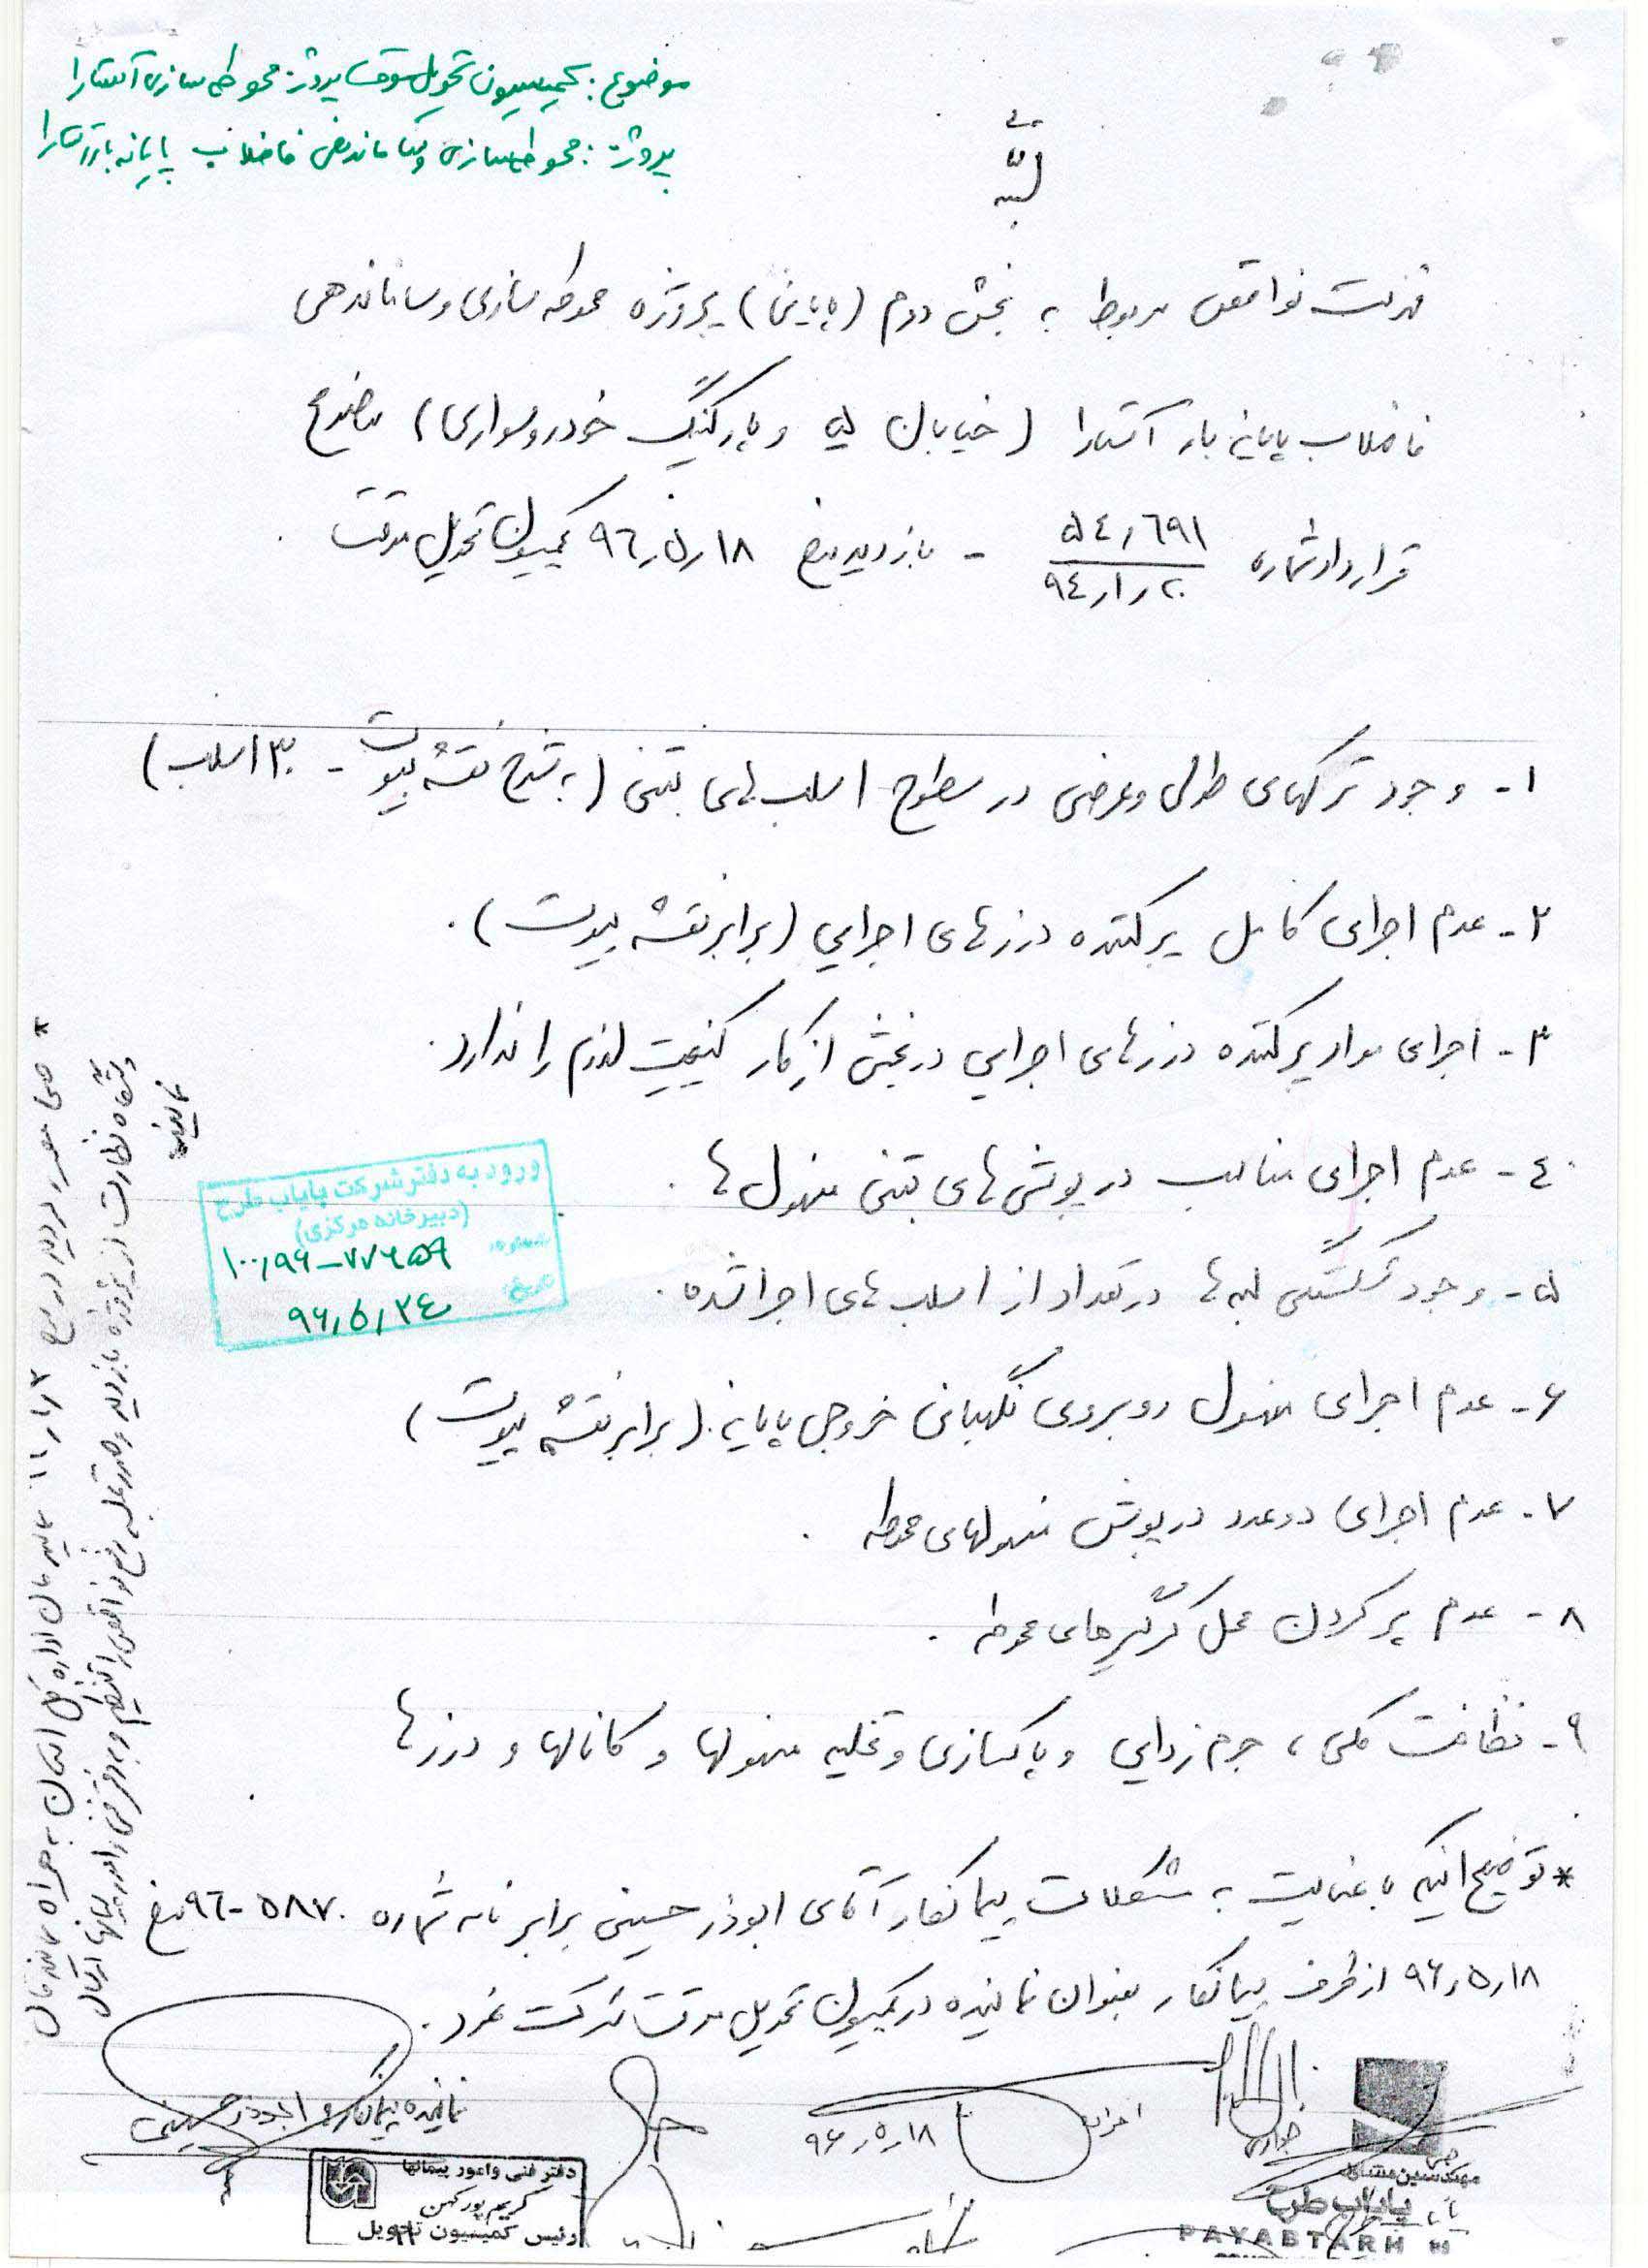 موضوع: کمیسیون تحویل موقت پروژه محوطه سازی آستارا
پروژه: محوطه سازی و ساماندهی فاضلاب پایانه بار آستارا
فهرست نواقص مربوط به بخش دوم (پایانی) پروژه محوطه سازی و ساماندهی
فاضلاب پایانه بار آستارا (خیابان ۵ و پارکینگ خودرو سواری) موضوع
قرارداد شماره ۵٤٫٦۹۱ / ۹٤٫۱٫۲۰ - بازدید مورخ ۹٦٫۵٫۱۸ کمیسیون تحویل موقت
۱- وجود ترکهای طولی و عرضی در سطوح اسلب های بتنی (به شرح نقشه پیوست - ۳۰ اسلب)
۲- عدم اجرای کامل پرکننده درزهای اجرایی (برابر نقشه پیوست).
۳- اجرای مواد پرکننده درزهای اجرایی در بخش از کار کیفیت لازم را ندارد.
٤- عدم اجرای مناسب درپوش های بتنی منهول ها.
۵- وجود شکستگی لبه ها در تعداد از اسلب های اجرا شده.
۶- عدم اجرای منهول روبروی نگهبانی خروجی پایانه. (برابر نقشه پیوست)
۷- عدم اجرای دو عدد درپوش منهولهای محوطه.
۸- عدم پر کردن محل کرگیرهای محوطه.
۹- نظافت کلی، جرم زدایی و پاکسازی و تخلیه منهولها و کانالها و درزها
* توضیح اینکه با عنایت به مشکلات پیمانکار آقای ابوذر حسینی برابر نامه شماره ۵۸۷۰-۹٦ مورخ
۹۶٫۵٫۱۸ از طرف پیمانکار بعنوان نماینده در کمیسیون تحویل موقت شرکت نمود.
* اداره کل استان به همراه نماینده
دستگاه نظارت از پروژه بازدید و صورتجلسه رفع نواقص را تنظیم و به دفتر فنی و امور پیمانها ارسال
نمایند
ورود به دفتر شرکت پایاب طرح
(دبیرخانه مرکزی)
شماره: ۱۰۰٫۹۶-۷۷۶۵۹
تاریخ: ۹۶٫۵٫۲٤
نماینده پیمانکار ابوذر حسینی
۹۶٫۵٫۱۸
دفتر فنی و امور پیمانها
کریم پور کهن
رئیس کمیسیون تحویل
مهندسین مشاور
پایاب طرح
PAYABTARH